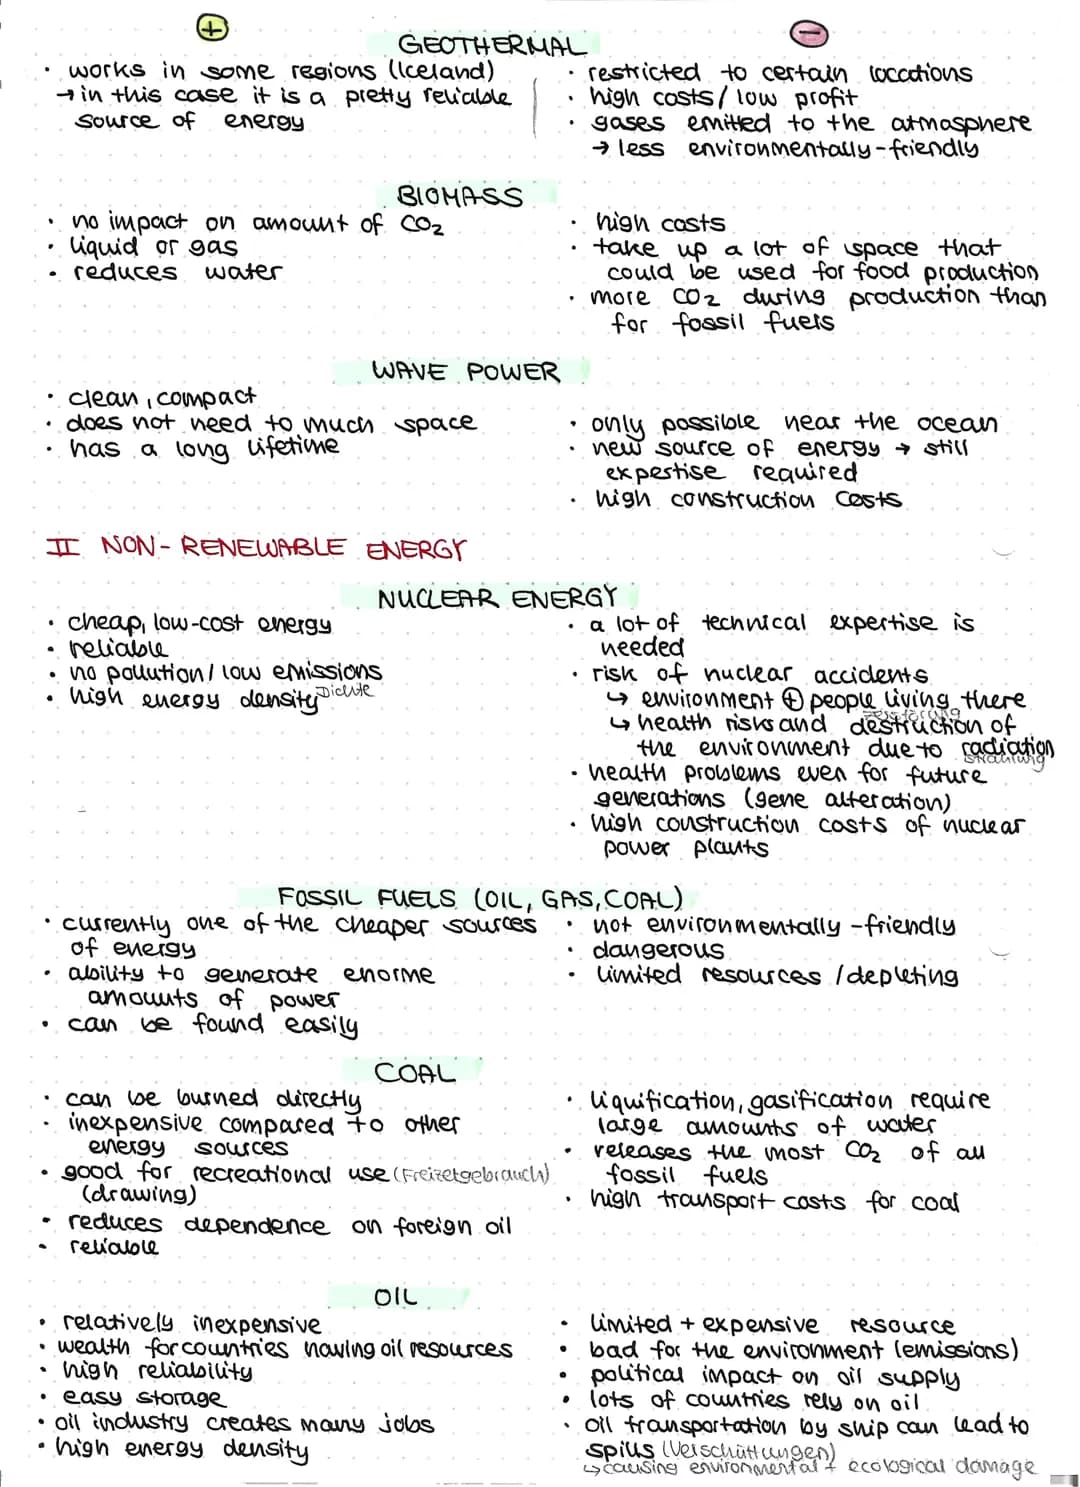 +
-
GEOTHERMAL
· works in some regions (Iceland)
→ in this case it is a pretty reliable
source of energy
· restricted to certain locations
· high costs / low profit
· gases emitted to the atmosphere
→ less environmentally-friendly
BIOMASS
· no impact on amount of CO2
· liquid or gas
· reduces water
· high costs
· take up a lot of space that
could be used for food production
· more CO2 during production than
for fossil fuels
WAVE POWER
· clean, compact
· does not need to much space
· has a long lifetime
· only possible near the ocean
· new source of energy → still
expertise required
· high construction costs
II NON-RENEWABLE ENERGY
NUCLEAR ENERGY
· cheap, low-cost energy
· reliable
· no pollution / low emissions
· high energy density Dichte
· a lot of technical expertise is
needed
· risk of nuclear accidents
↳ environment + people living there
Zerstörung
↳ health risks and destruction of
the environment due to radiation
Strahlung
· health problems even for future
generations (gene alteration)
· high construction costs of nuclear
power plants
FOSSIL FUELS (OIL, GAS, COAL)
· currently one of the cheaper sources
of energy
· ability to generate enorme
amounts of power
· can be found easily
· not environmentally-friendly
· dangerous
· limited resources / depleting
COAL
· can be burned directly
· inexpensive compared to other
energy sources
· good for recreational use (Freizetgebrauch)
(drawing)
· reduces dependence on foreign oil
· reliable
· liquification, gasification require
large amounts of water
· releases the most CO2 of all
fossil fuels
· high transport costs for coal
OIL
· relatively inexpensive
· wealth for countries having oil resources
· high reliability
· easy storage
· oil industry creates many jobs
· high energy density
· limited + expensive resource
· bad for the environment (emissions)
· political impact on oil supply
· lots of countries rely on oil
· oil transportation by ship can lead to
spills (Verschüttungen)
↳ causing environmental + ecological damage